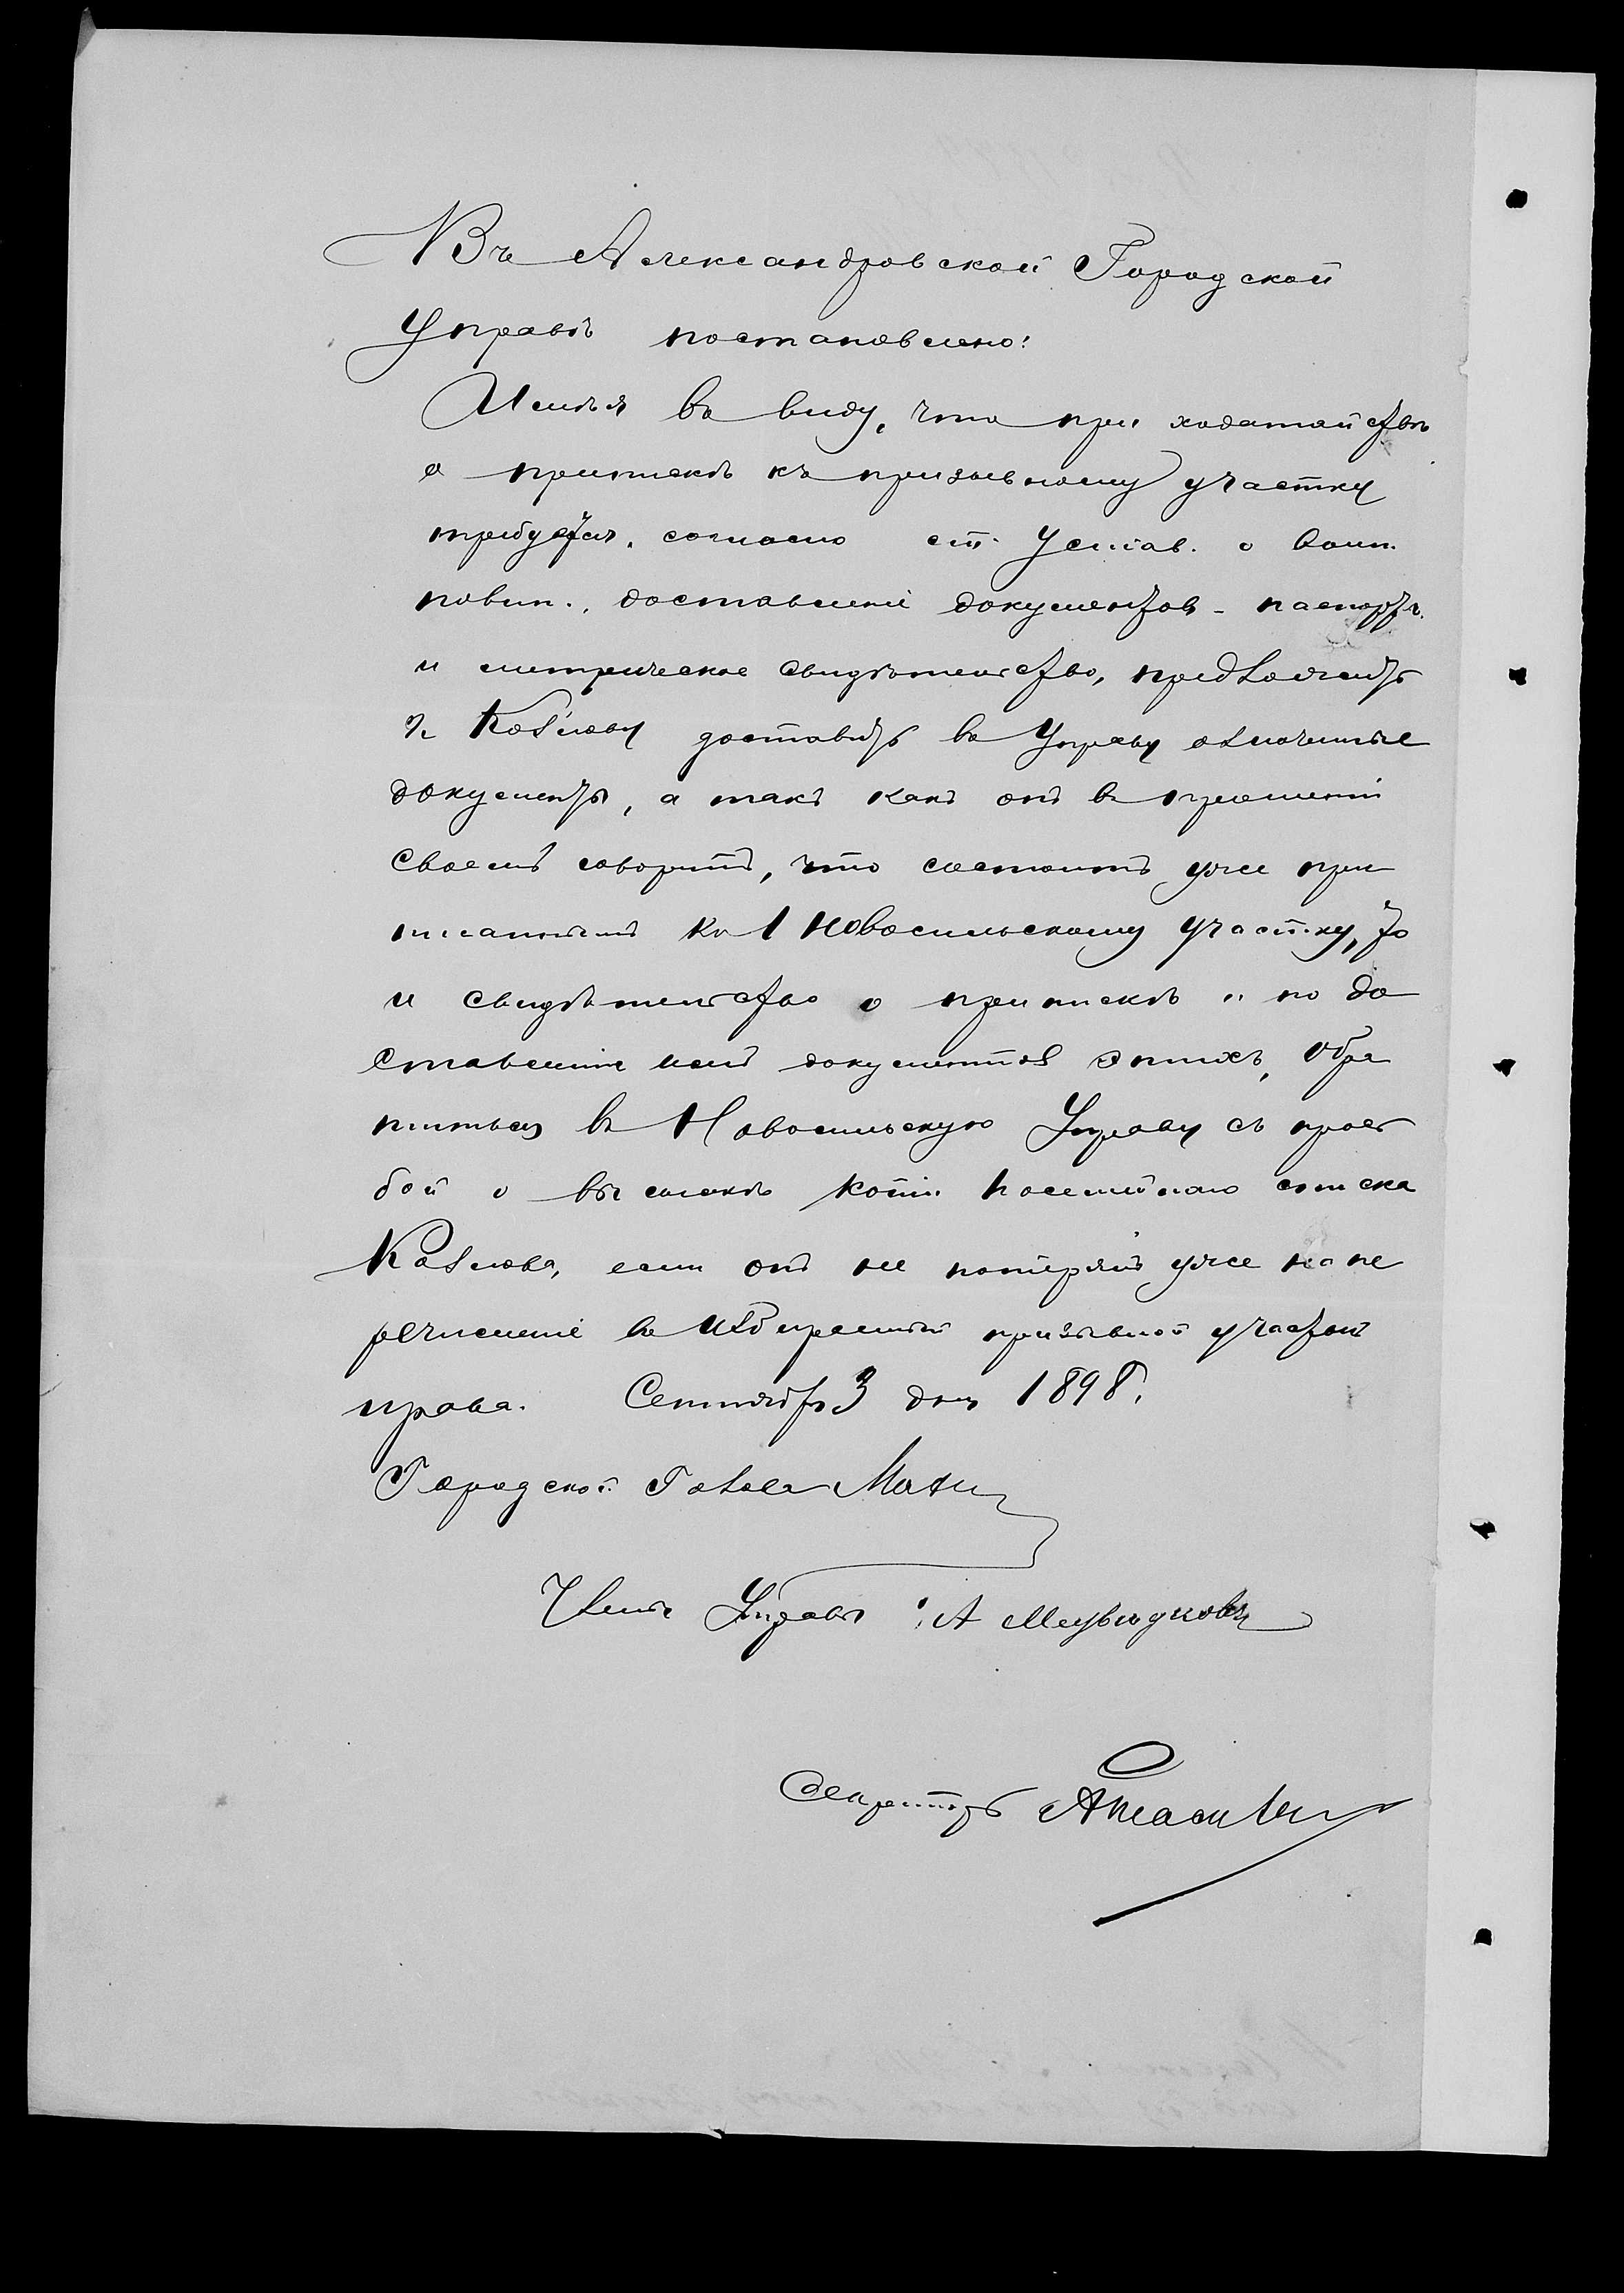 Въ Александровской Городской
Управѣ постановлено:
Имѣя въ виду, что при ходатайствѣ
о припискѣ къ призывному участку
требуется, согласно ст. Устав. о воин.
повин., доставленіе документов - паспортъ
и метрическое свидѣтельство, предложить
г. Козлову доставить въ Управу означенные
документы, а такъ какъ онъ въ прошеніи
своемъ говоритъ, что состоитъ уже при
писаннымъ къ 1 Новосильскому участку, то
и свидѣтельство о припискѣ и по до
ставленіи имъ документовъ этихъ, обра
титься въ Новосильскую Управу съ прось
бой о высылкѣ копіи посемейнаго списка
Козлова, если онъ не потерялъ уже на пе
речисленіе въ избранный призывной участокъ
права. Сентября 3 дня 1898.
Городской Голова
Членъ Управы А
Секретарь